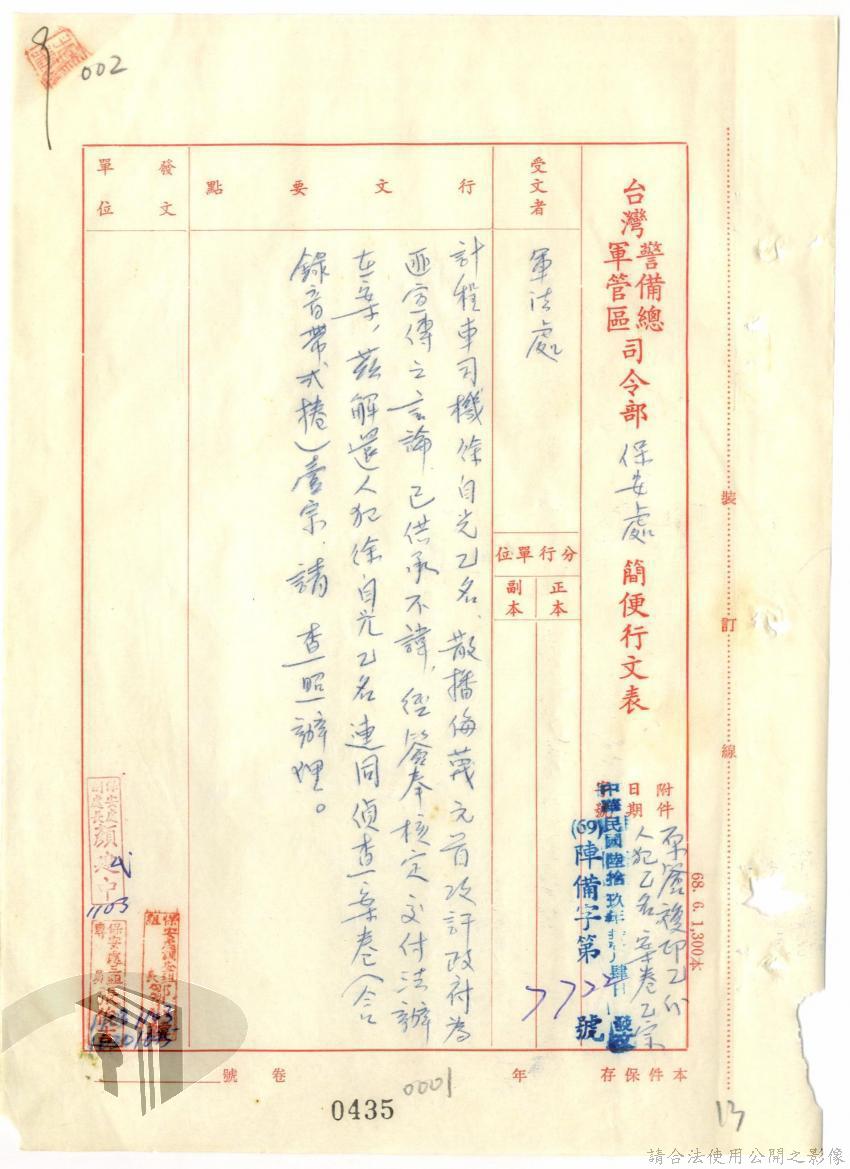 002
台灣警備總軍管區司令部 保安處 簡便行文表
附件
原簽複印乙份
人犯乙名案卷乙宗
日期
字號
中華民國陸拾玖年拾月肆日 發文
(69)陣備字第7722號
受文者
軍法處
分行單位
正本
副本
行文要點
計程車司機徐自光乙名、散播侮蔑元首攻訐政府為
匪宣傳之言論、已供承不諱，經簽奉核定交付法辦
在案，茲解還人犯徐自光乙名連同偵查案卷(含
錄音帶弍捲)壹宗，請 查照辦理。
發文單位
保安處副處長顏
1103
保安處
組長
保安處三組
專員
裝
訂
線
68. 6. 1,300本
本件保存 年 卷 號
0001
0435
13
請合法使用公開之影像